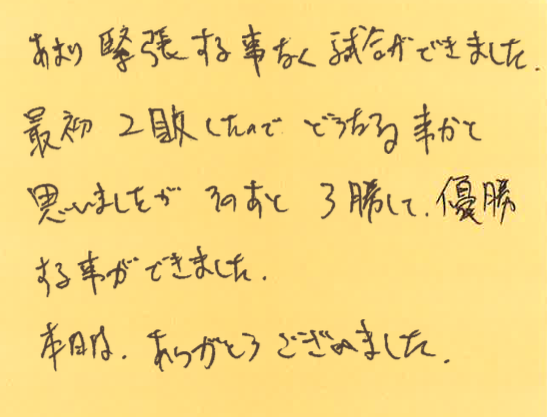 あまり緊張する事なく試合ができました.
最初2敗したのでどうなる事かと
思いましたが そのあと 3勝して、優勝
する事ができました.
本日は、ありがとうございました.